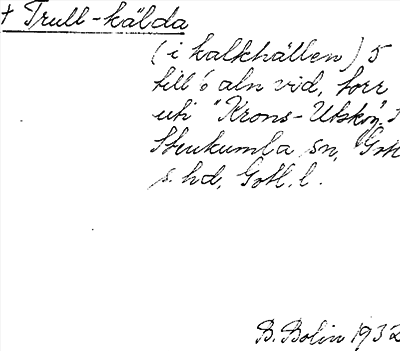 + Trull-kälda
(i kalkhällen) 5
till 6 aln vid, torr
uti "Krons-Utskog".
Stenkumla sn, Gotl
s. hd, Gotl. l.
B. Bolin 1932